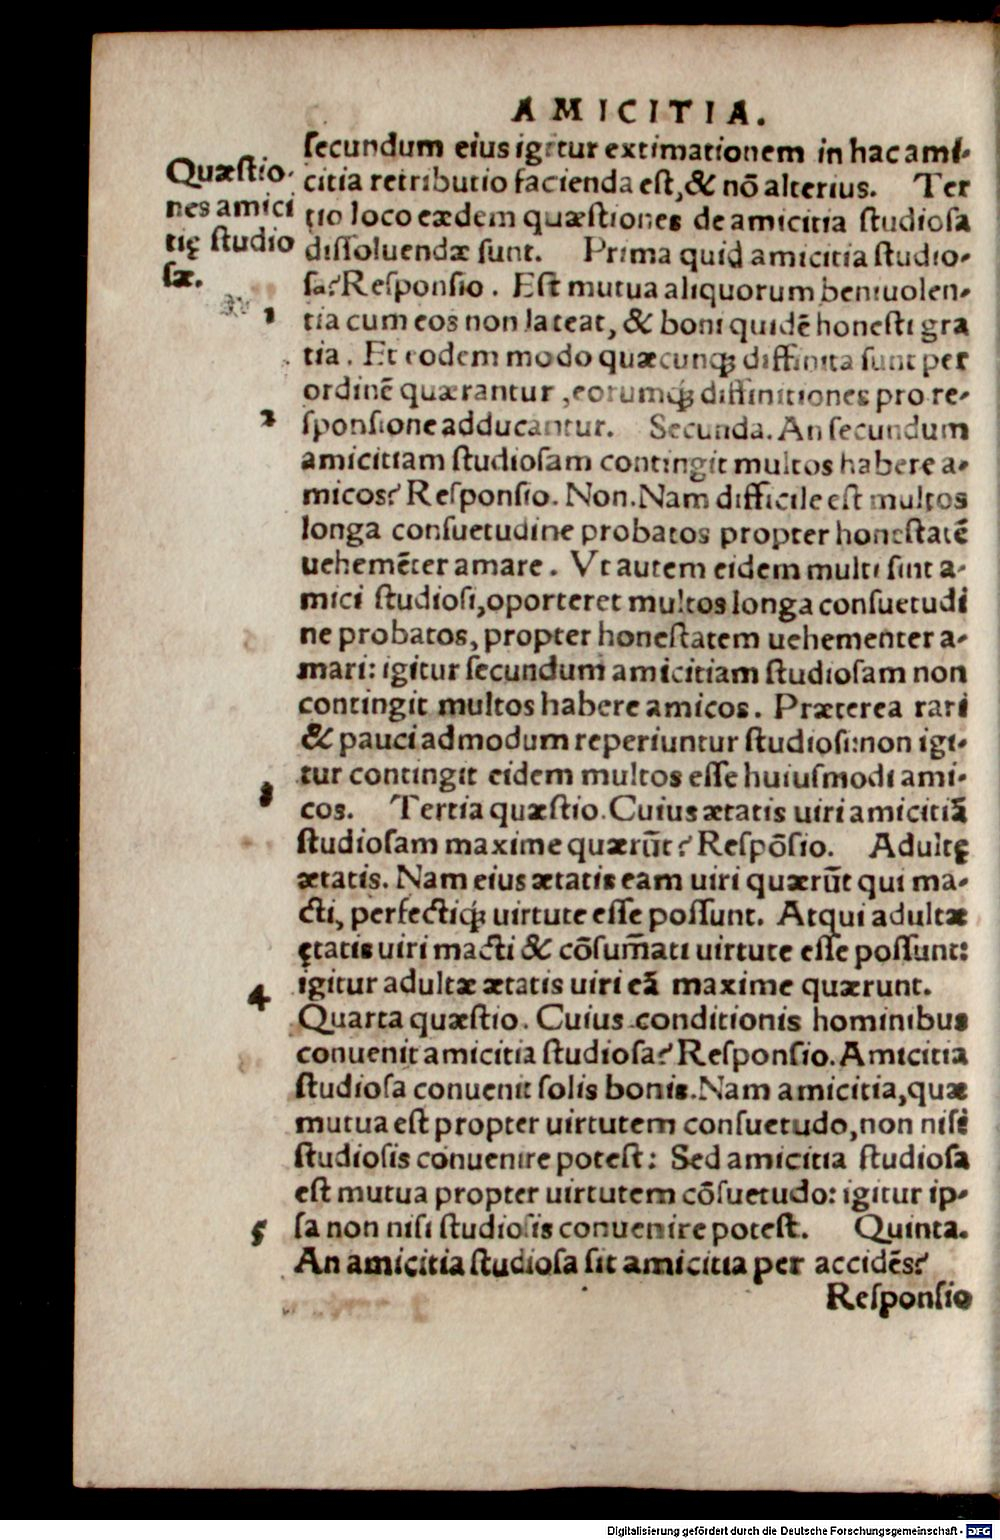 AMICITIA.
ſecundum eius igitur extimationem in hac ami-
citia retributio facienda eſt, & nō alterius. Ter
tio loco eædem quæſtiones de amicitia ſtudioſa
diſſoluendæ ſunt. Prima quid amicitia ſtudio-
ſa? Reſponſio. Eſt mutua aliquorum beniuolen-
tia cum eos non lateat, & boni quidē honeſti gra
tia. Et eodem modo quæcunqꝫ diffinita ſunt per
ordinē quærantur, eorumqꝫ diffinitiones pro re-
ſponſione adducantur. Secunda. An ſecundum
amicitiam ſtudioſam contingit multos habere a-
micos? Reſponſio. Non. Nam difficile eſt multos
longa conſuetudine probatos propter honeſtatē
uehemēter amare. Vt autem eidem multi ſint a-
mici ſtudioſi, oporteret multos longa conſuetudi
ne probatos, propter honeſtatem uehementer a-
mari: igitur ſecundum amicitiam ſtudioſam non
contingit multos habere amicos. Præterea rari
& pauci admodum reperiuntur ſtudioſi: non igi-
tur contingit eidem multos eſſe huiuſmodi ami-
cos. Tertia quæſtio. Cuius ætatis uiri amicitiā
ſtudioſam maxime quærūt? Reſpōſio. Adultę
ætatis. Nam eius ætatis eam uiri quærūt qui ma-
cti, perfectiqꝫ uirtute eſſe poſſunt. Atqui adultæ
ętatis uiri macti & cōſum̄ati uirtute eſſe poſſunt:
igitur adultæ ætatis uiri eā maxime quærunt.
Quarta quæſtio. Cuius conditionis hominibus
conuenit amicitia ſtudioſa? Reſponſio. Amicitia
ſtudioſa conuenit ſolis bonis. Nam amicitia, quæ
mutua eſt propter uirtutem conſuetudo, non niſi
ſtudioſis conuenire poteſt: Sed amicitia ſtudioſa
eſt mutua propter uirtutem cōſuetudo: igitur ip-
ſa non niſi ſtudioſis conuenire poteſt. Quinta.
An amicitia ſtudioſa ſit amicitia per accidēs?
Reſponſio
Quæſtio-
nes amici
tię ſtudio
ſæ.
1
2
3
4
5
Digitalisierung gefördert durch die Deutsche Forschungsgemeinschaft - DFG